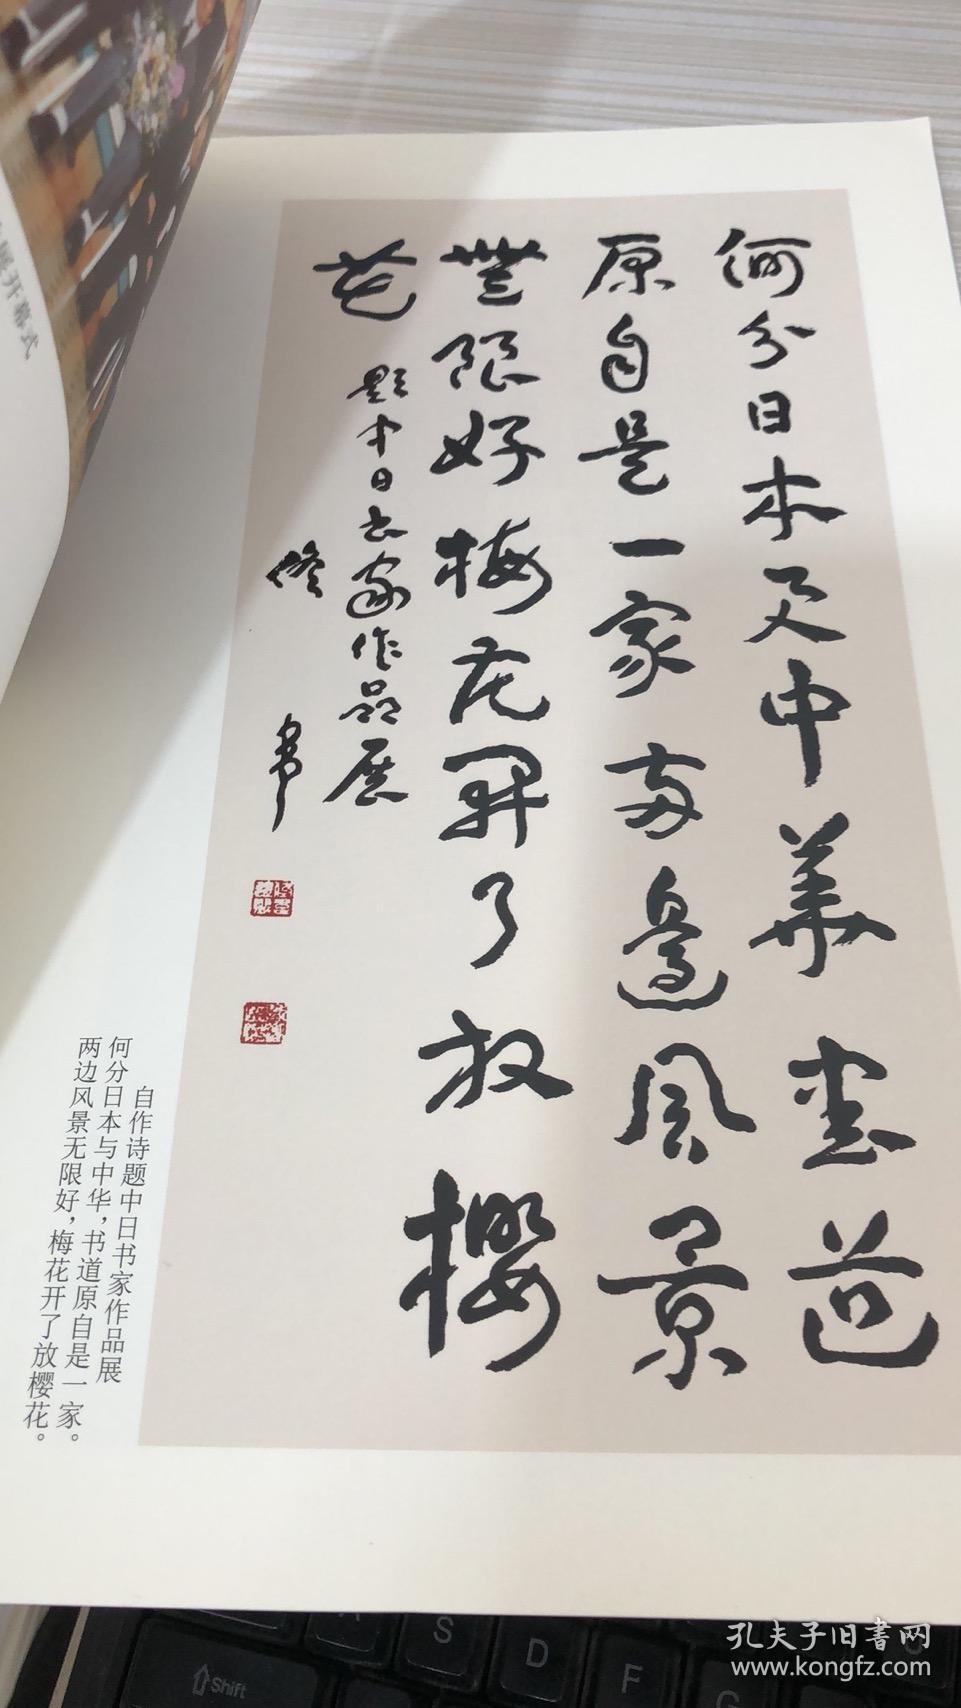 何分日本又中華書道
原自是一家两邊風景
無限好梅花開了放櫻
花
題中日书家作品展
自作诗题中日书家作品展
何分日本与中华，书道原自是一家。
两边风景无限好，梅花开了放樱花。
展开幕式
Shift
S
D
F
孔夫子旧书网
www.kongfz.com